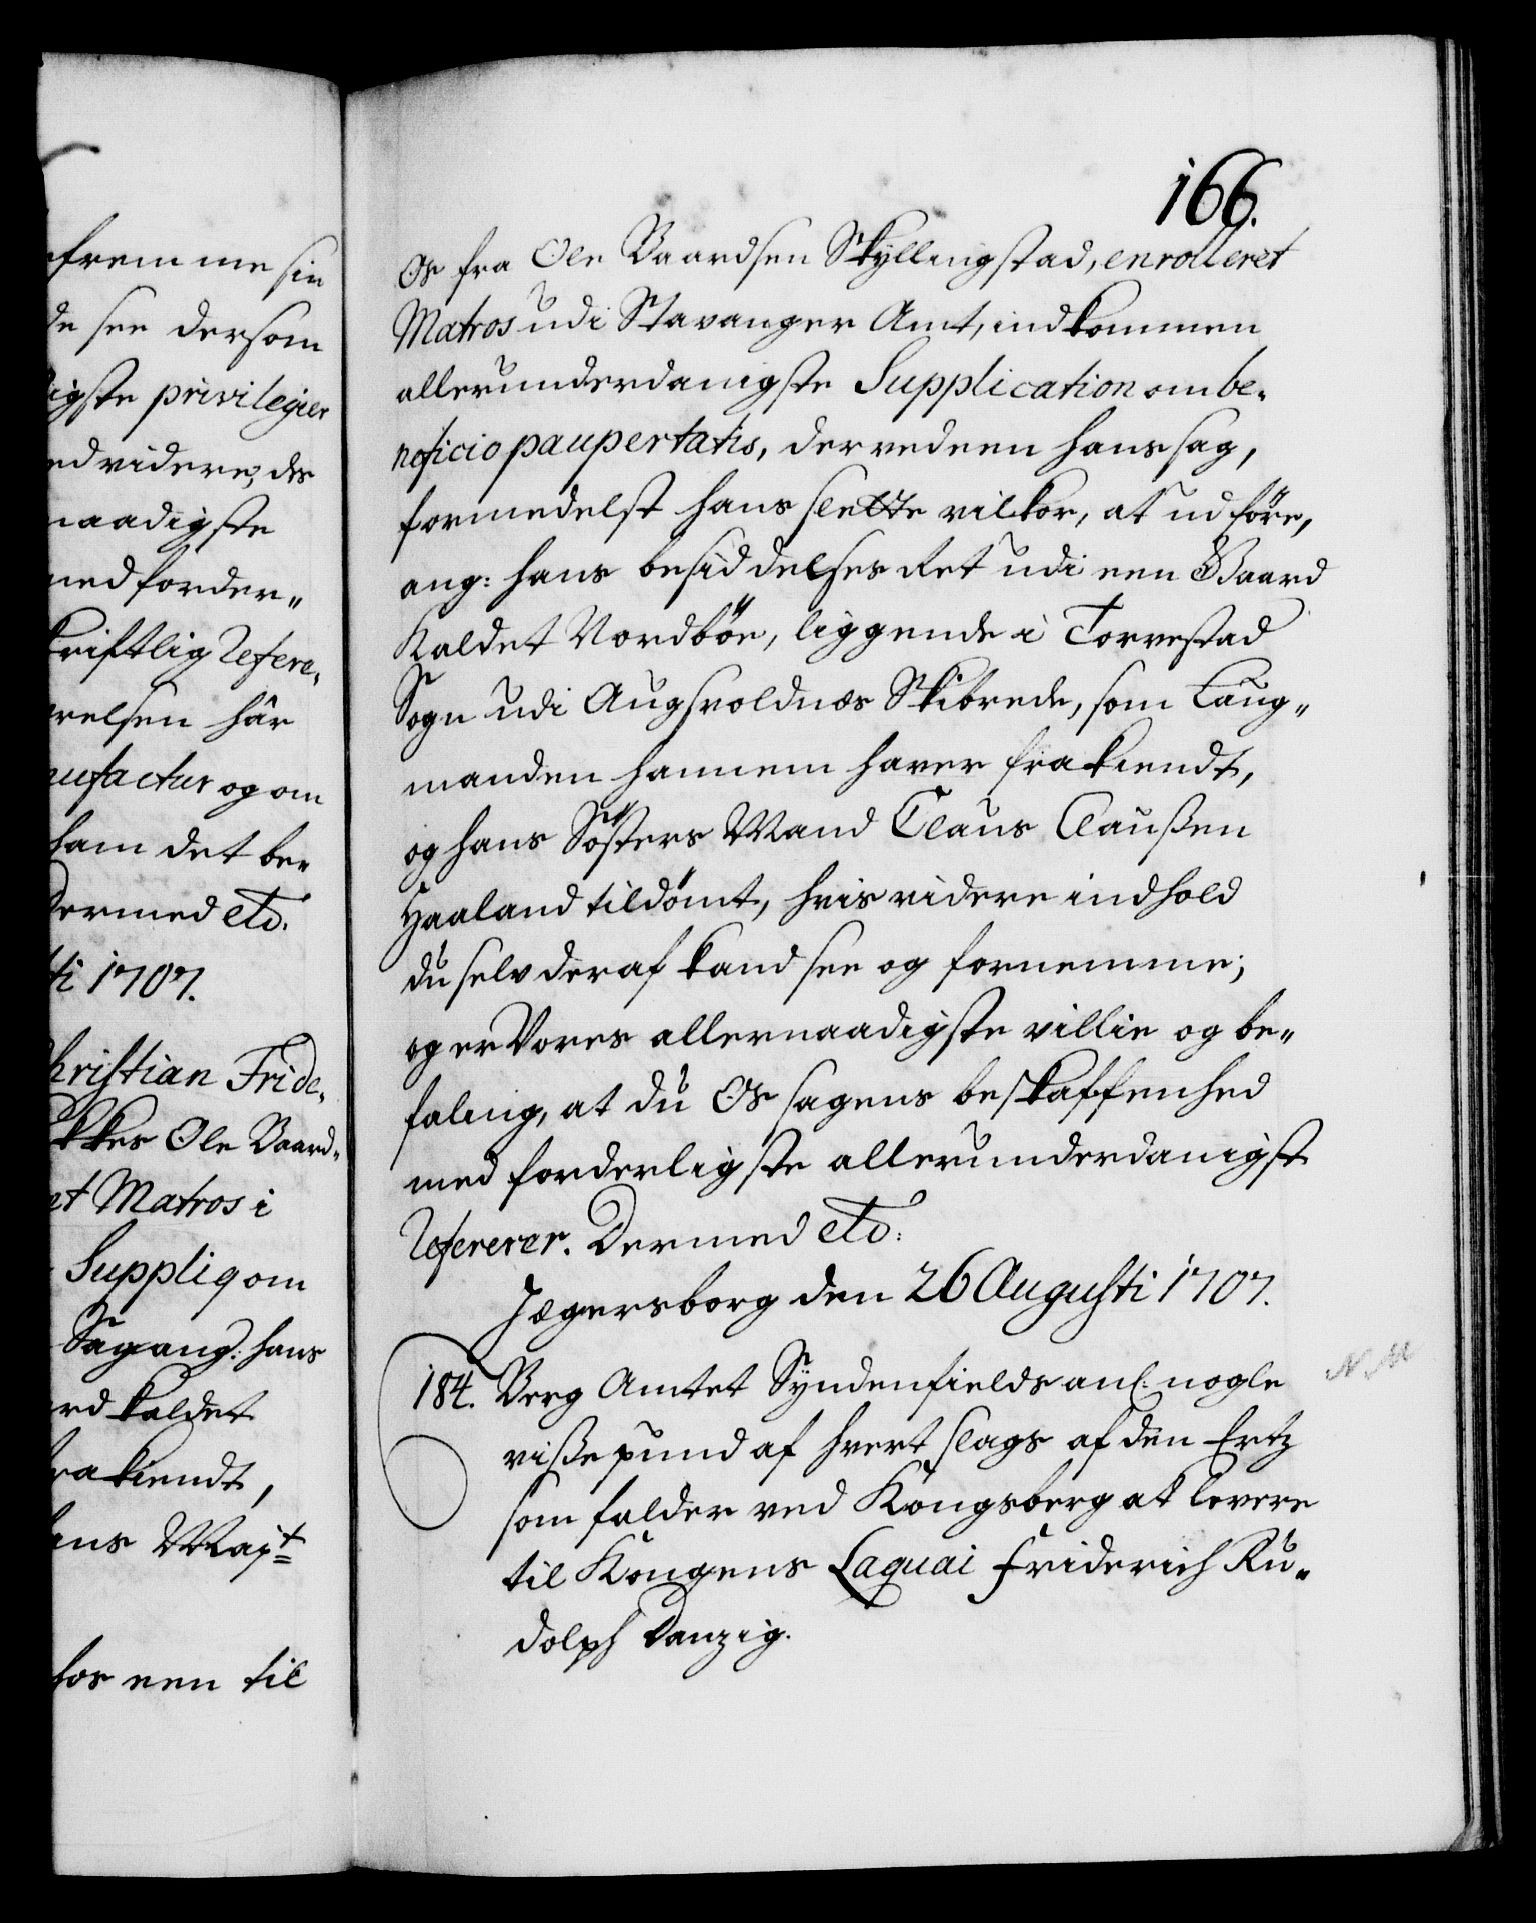 efremme sin
de see dersom
igste privilegier
ed videre, des
naadigste
med forder„
kriftlig Refere„
relsen här
nufactur og om
ham det be„
Dermed etc.
ti 1707.
hristian Fride„
kkes Ole Baard„
et Matros i
Suppliq om
Sag ang: hans
rd kaldet
rakiendt,
ans Mayt
hos een til
166.
Os fra Ole Baardsen Skyllingstad, enrolleret
Matros udi Stavanger Amt, indkommen
allerunderdanigste Supplication om be„
neficio paupertatis, derved een hans sag,
formedelst hans slette vilkor, at udföre,
ang: hans besiddelses Ret udi een Gaard
Kaldet Nordböe, liggende i Torvestad
Sogn udi Augsvoldnæs Skibrede, som Laug„
manden hannem haver frakiendt,
og hans Sösters Mand Claus Claußen
Haaland tildömt, hvis videre indhold
du selv deraf kand see og fornemme;
og er Vores allernaadigste villie og be„
faling, at du Os sagens beskaffenhed
med forderligste allerunderdanigst
Refererer. Dermed etc:
Jægersborg den 26 Augusti 1707.
184. Berg Amtet Syndenfields anl. nogle
visse pund af hvert slags af den Ertz
som falder ved Kongsberg at levere
til Kongens Laquai Friderich Ru„
dolph Danzig.